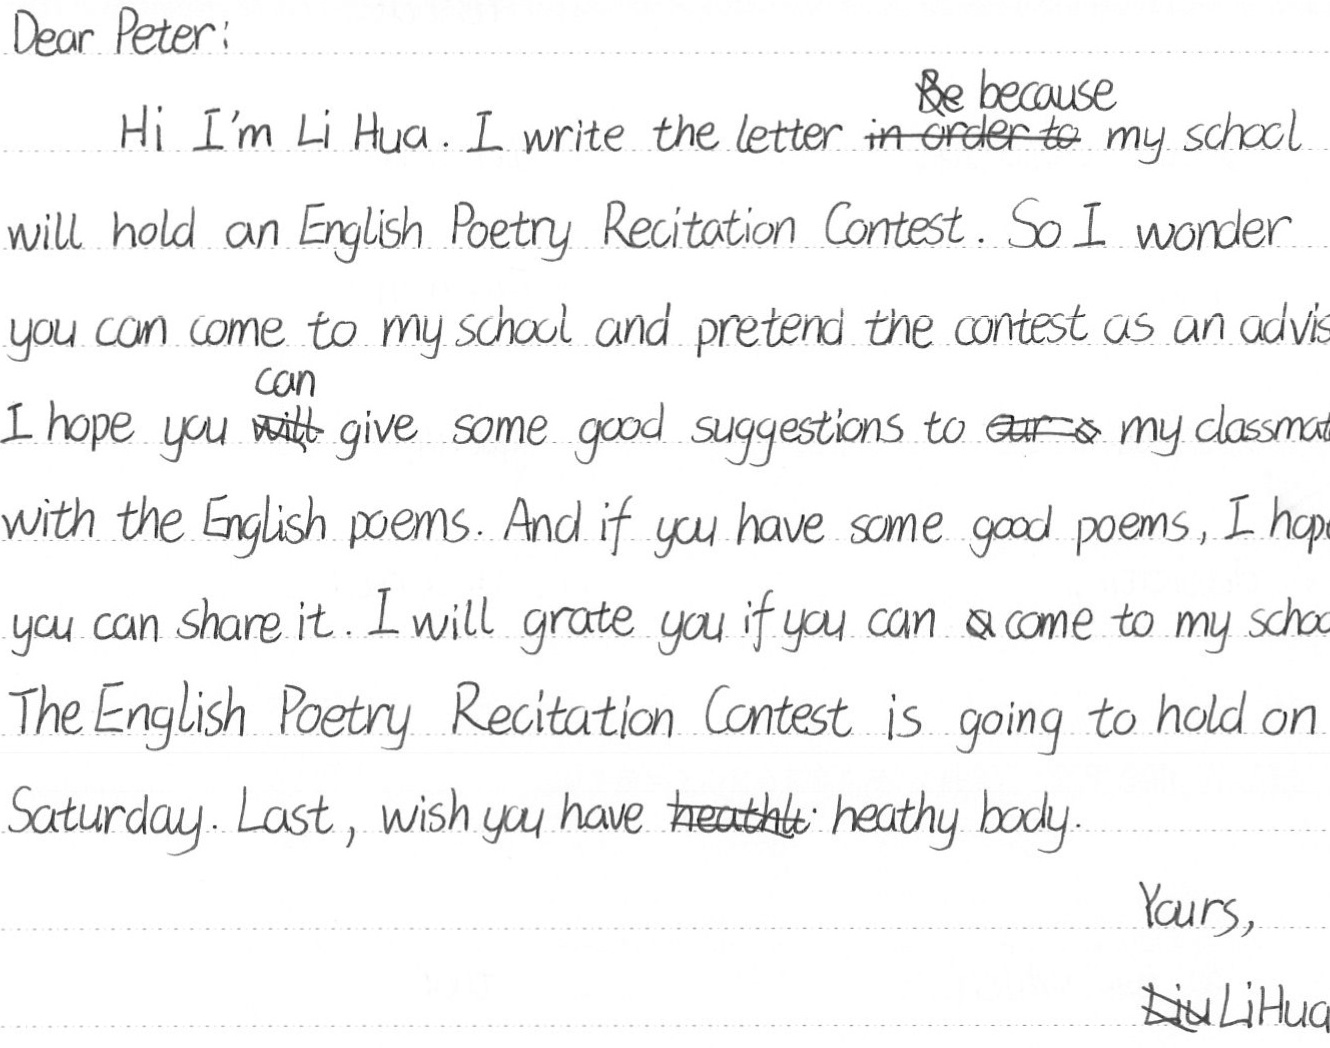 Dear Peter:
Hi I'm Li Hua. I write the letter because my school
will hold an English Poetry Recitation Contest. So I wonder
you can come to my school and pretend the contest as an advis
I hope you can give some good suggestions to my classmat
with the English poems. And if you have some good poems, I hop
you can share it. I will grate you if you can come to my schoo
The English Poetry Recitation Contest is going to hold on
Saturday. Last, wish you have heathy body.
Yours,
Li Hua